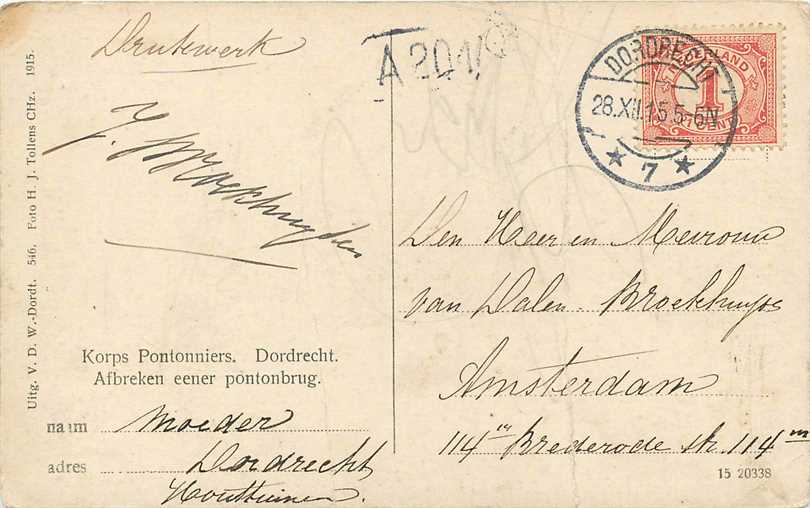 Drukwerk
A 201/
J. M. Broekhuyzen
DORDRECHT
28.XII.15 5-6N
★ 7 ★
NEDERLAND
1
CENT
Uitg. V. D. W.-Dordt. 546. Foto H. J. Tollens CHz. 1915.
Den Heer en Mevrouw
van Dalen - Broekhuyse
Amsterdam
114 Brederode str. 114
Korps Pontonniers. Dordrecht.
Afbreken eener pontonbrug.
naam Moeder
adres Dordrecht
Houttuinen.
15 20338